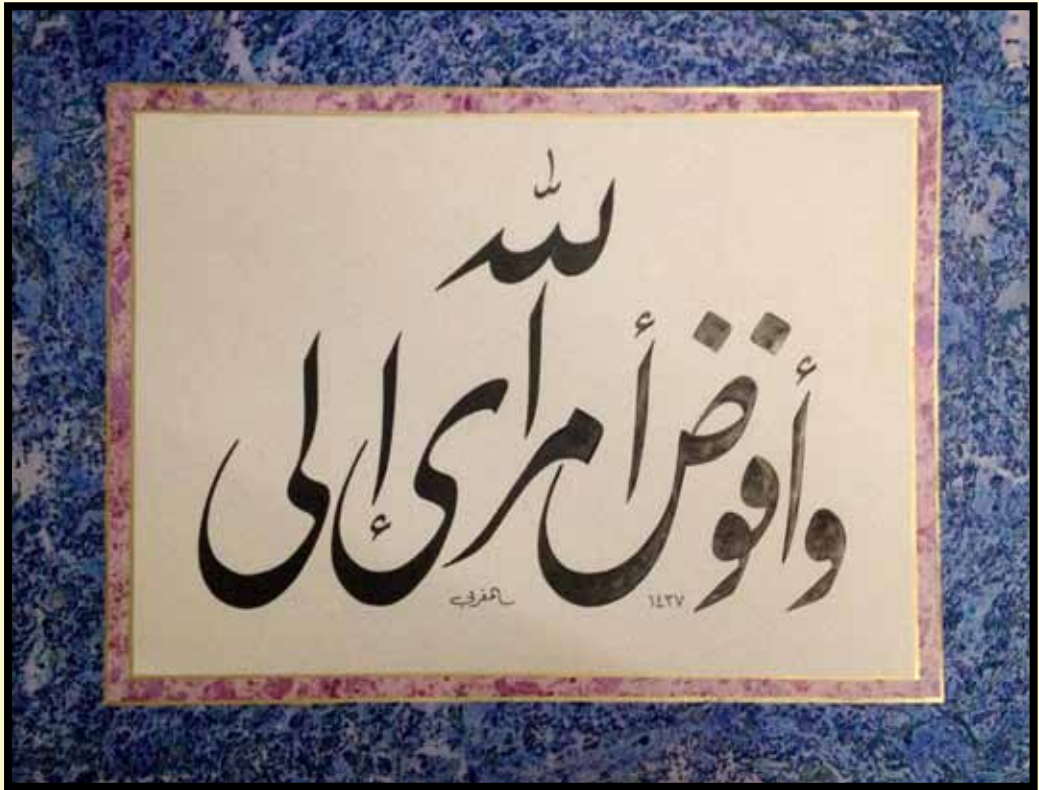 وأفوض أمرى إلى الله
١٤٣٧